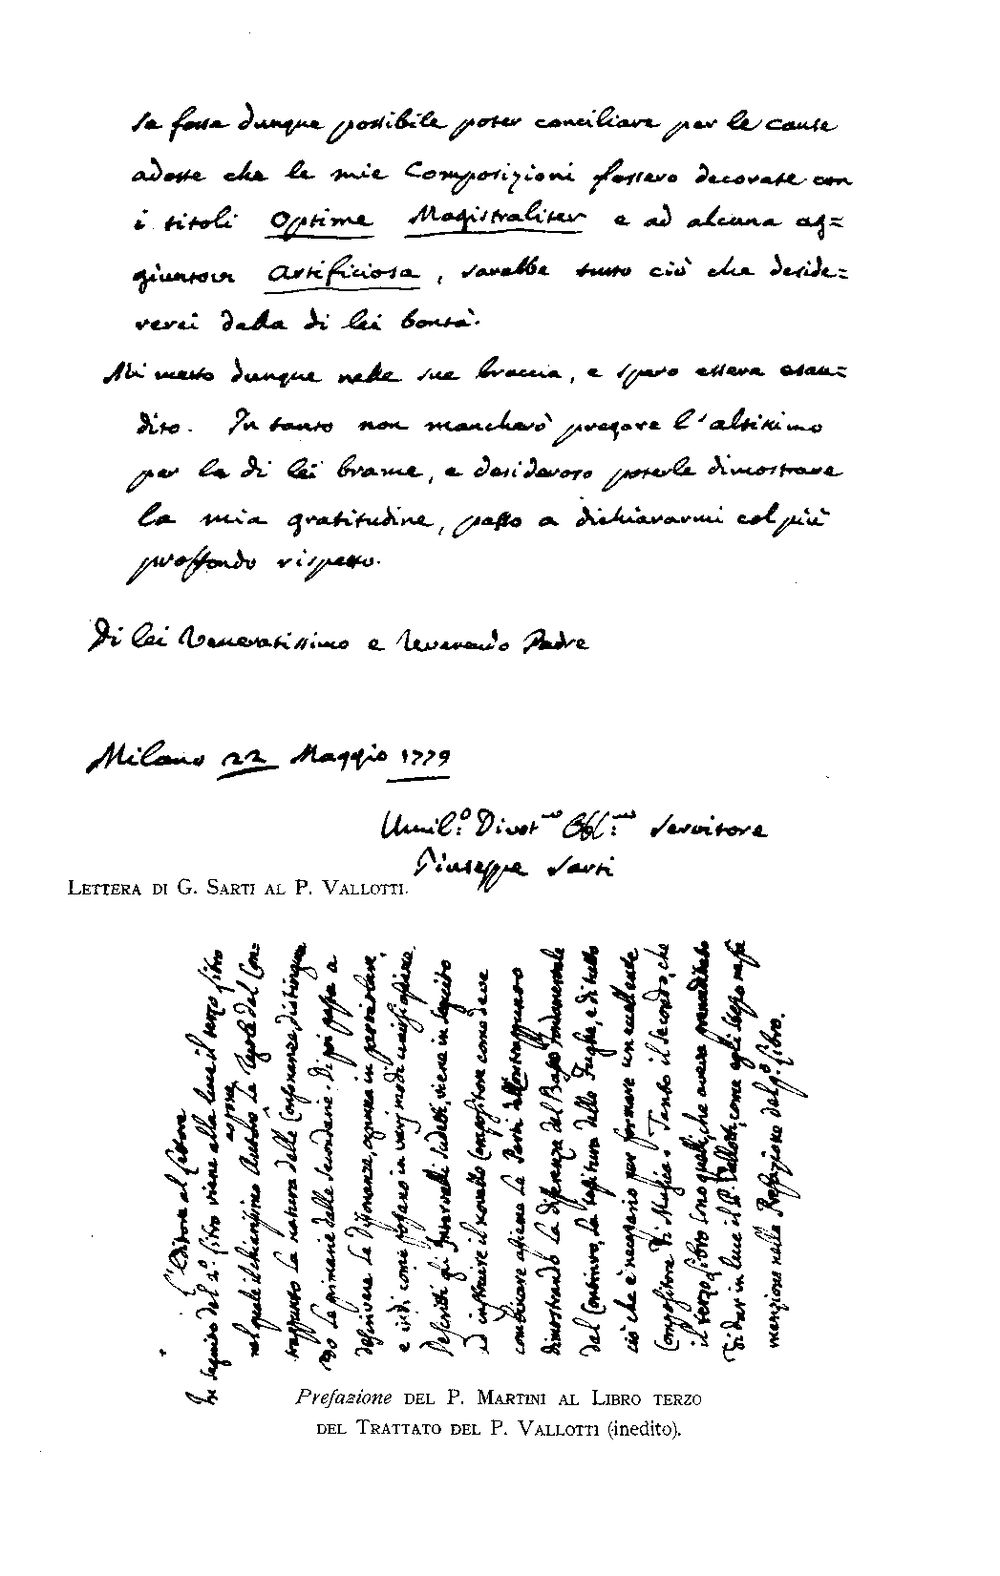 Se fosse dunque possibile poter conciliare per le cause
adotte che le mie Composizioni fossero decorate con
i titoli Optime Magistraliter e ad alcuna ag=
giuntovi Artificiosa, sarebbe tutto ciò che deside=
rerei dalla di lei bontà.
Mi metto dunque nelle sue braccia, e spero essere esau=
dito. In tanto non mancherò pregare l'altissimo
per le di lei brame, e desideroso poterle dimostrare
la mia gratitudine, passo a dichiararmi col più
proffondo rispetto.
Di lei Veneratissimo e Reverendo Padre
Milano 22 Maggio 1779
Umil.º Divot.mo Obl.mo Servitore
Giuseppe Sarti
LETTERA DI G. SARTI AL P. VALLOTTI.
L'Editore al Lettore
In seguito del 2.º Libro viene alla luce il terzo Libro
nel quale il chiarissimo Autore espone le Regole del Con=
trappunto la natura delle Consonanze, distinguen
do le primarie dalle secondarie. Di poi passa a
descrivere le Dissonanze, ognuna in particolare,
e indi come possano in varj modi
Descritti gli Intervalli sudetti, viene in seguito
ad instruire il novello Compositore come deve
combinare assieme le Parti del Contrappunto
dimostrando la diferenza del Basso fondamentale
dal Continuo, la tessitura delle Fughe, e di tutto
ciò che è necessario per formare un eccellente
Compositore di Musica. Tanto il secondo, che
il terzo Libro sono quelli, che aveva premeditato
di dar in luce il P. Vallotti, come egli stesso ne fa
menzione nella Prefazione del p.º Libro.
Prefazione DEL P. MARTINI AL LIBRO TERZO
DEL TRATTATO DEL P. VALLOTTI (inedito).